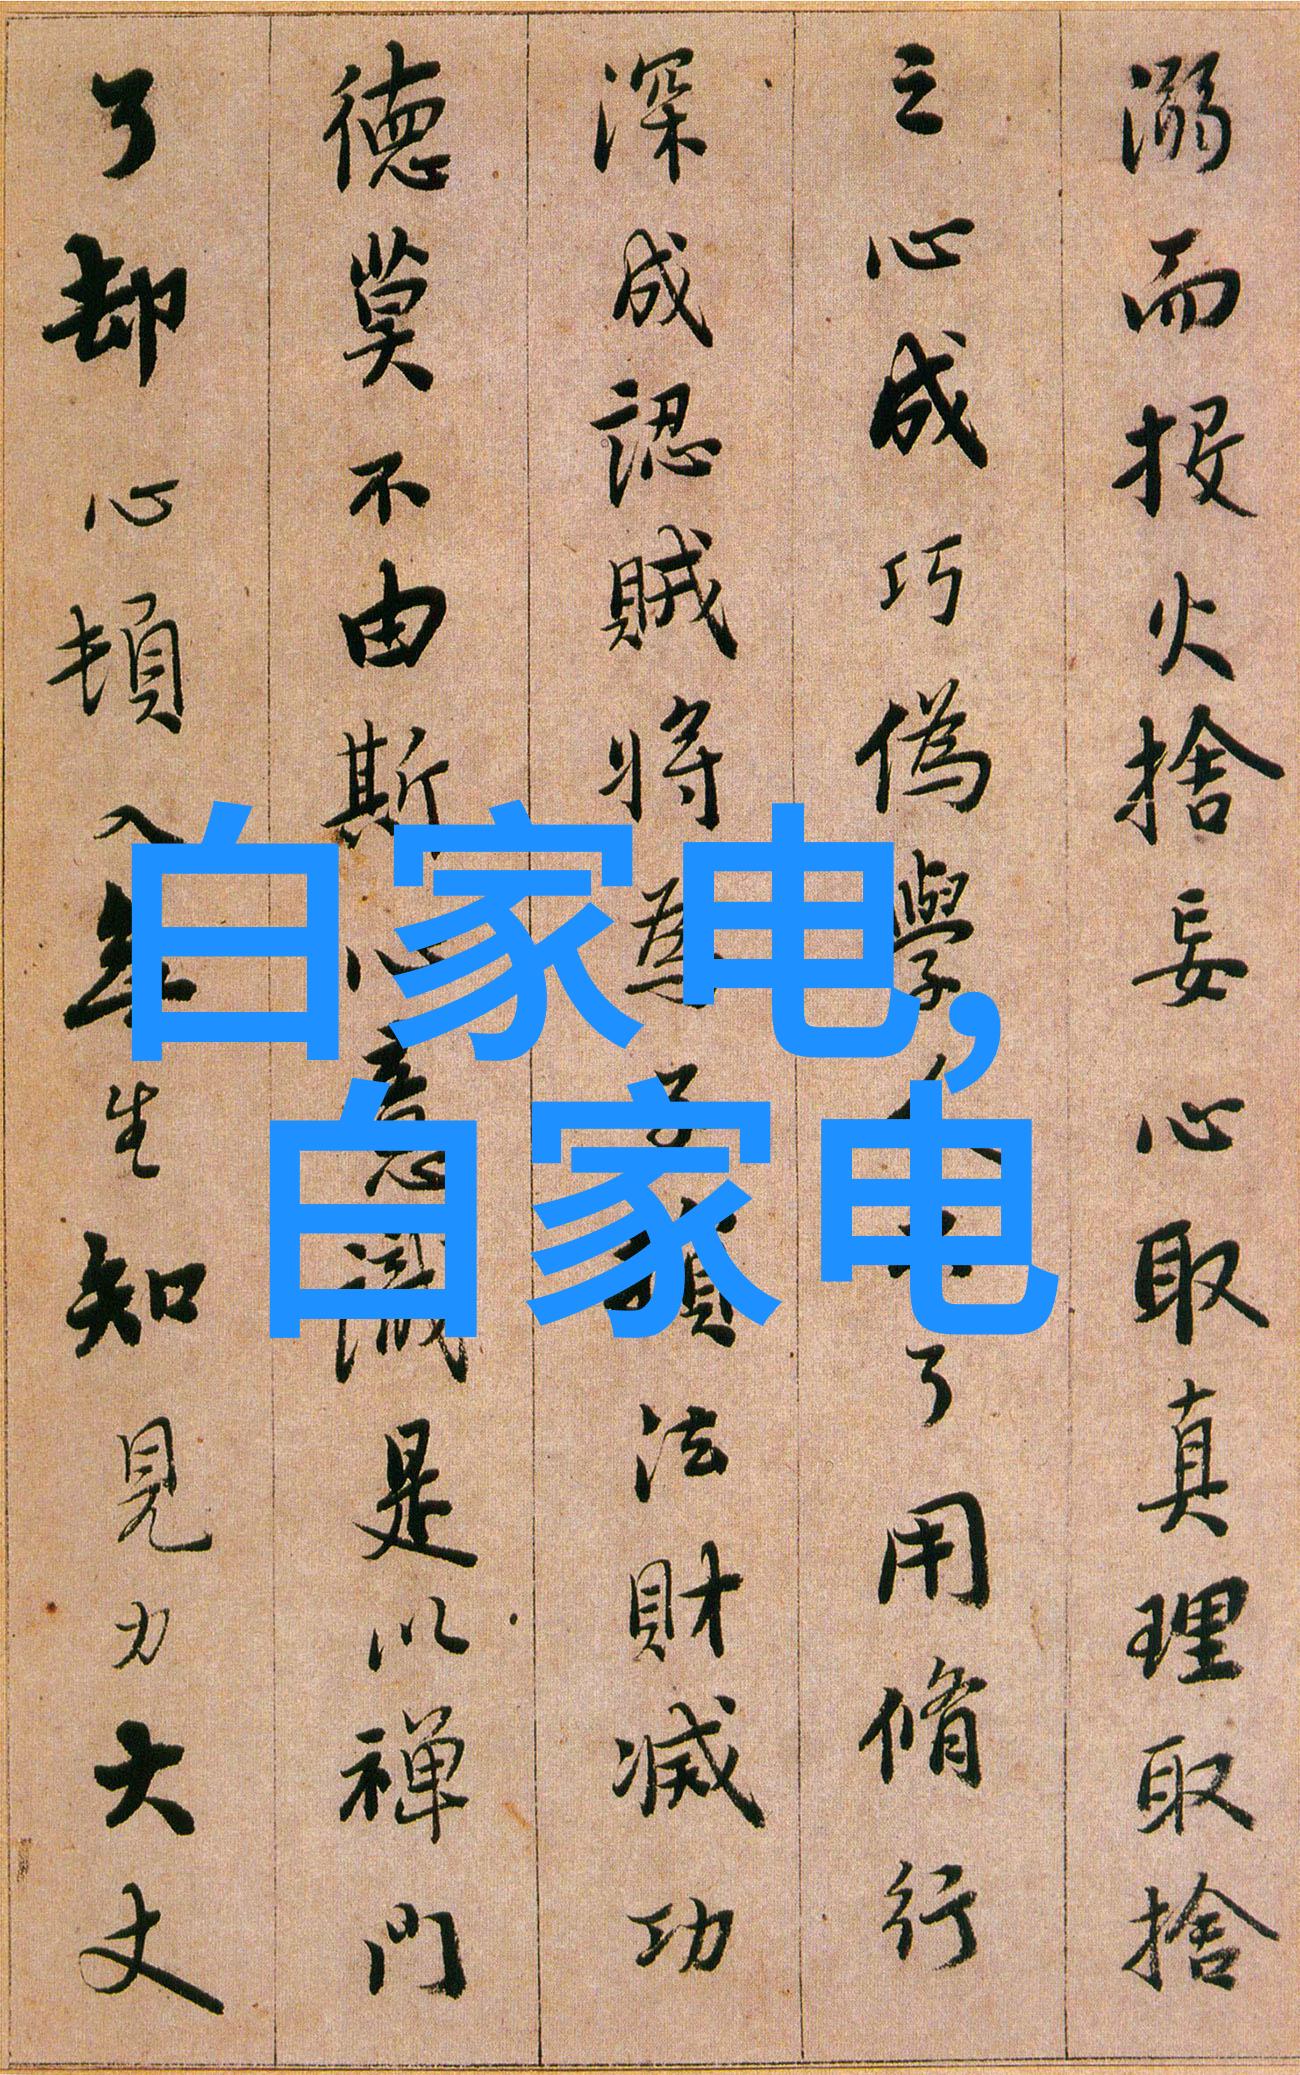 溺而投火捨妄心取真理取捨
之心成巧偽學了用脩行
深成認賊將為子損法財滅功
德莫不由斯心意識是以禅門
了却心頓入無生知見力大丈
白家电,
白家电